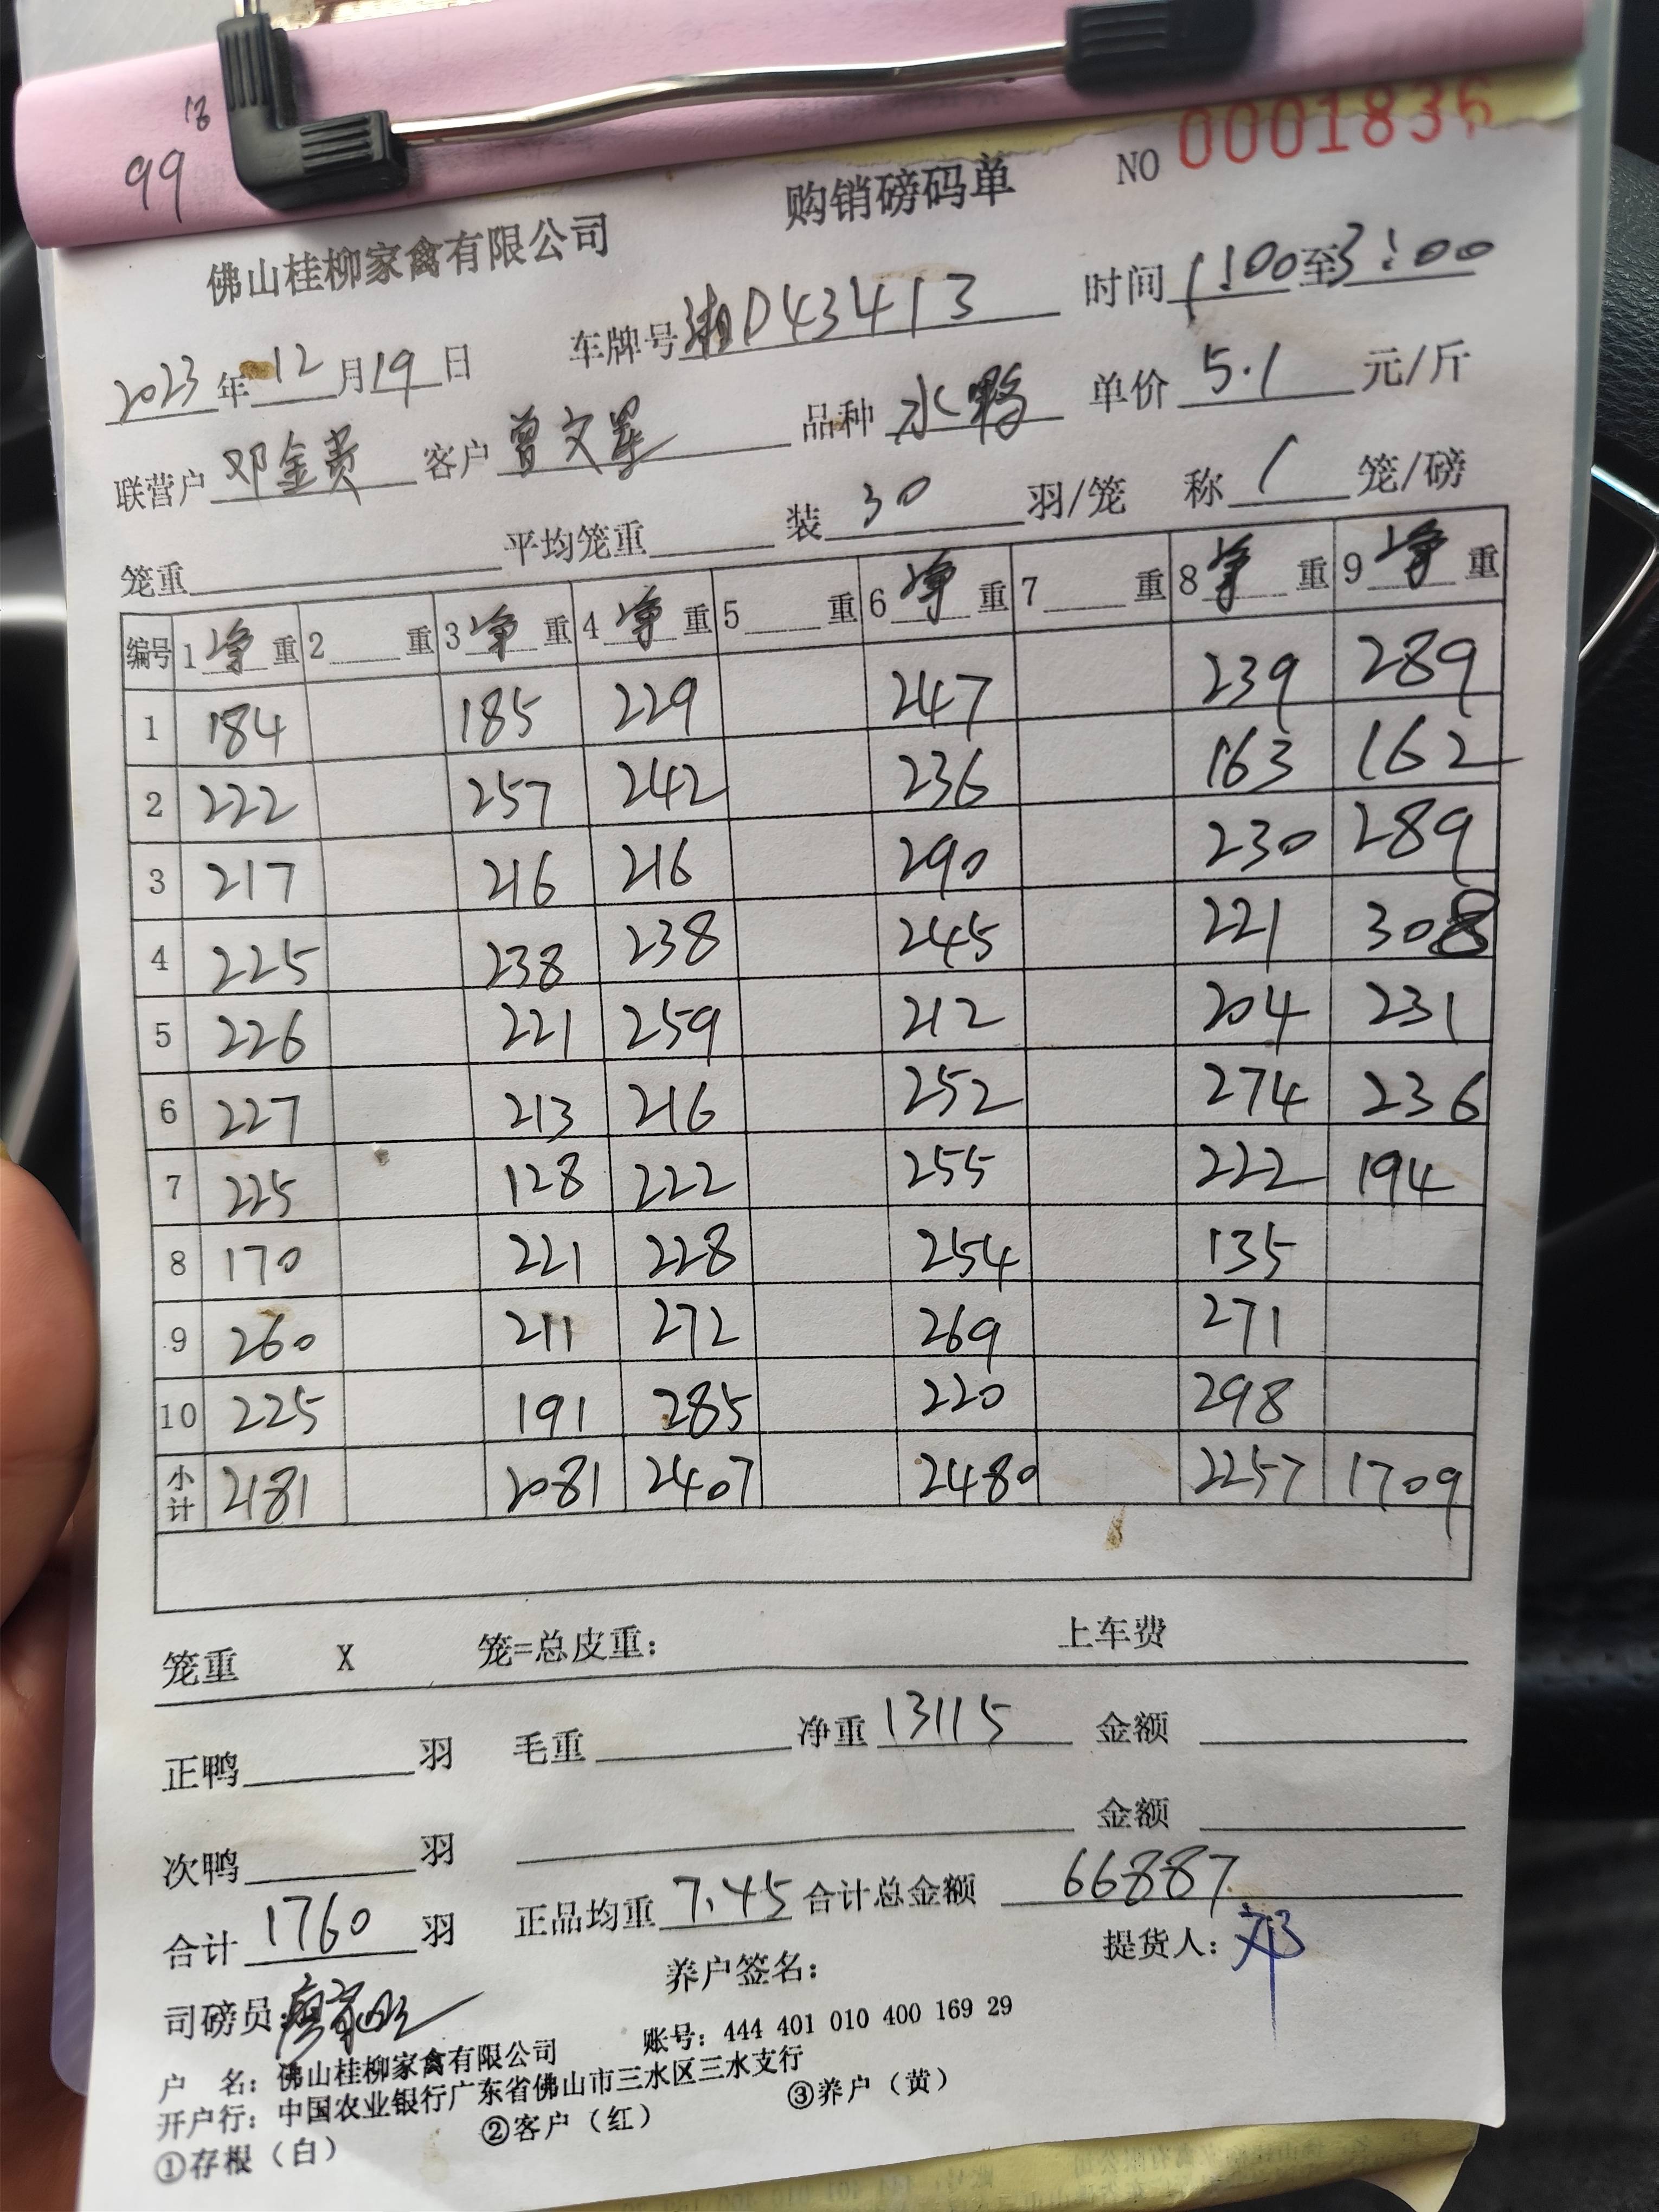 18
99
佛山桂柳家禽有限公司 购销磅码单 NO 0001836
2023年12月19日 车牌号湘D43413 时间1:00至3:00
联营户邓金贵 客户曾文星 品种水鸭 单价5.1元/斤
笼重 平均笼重 装30羽/笼 称1笼/磅
编号 1净重 2重 3净重 4净重 5重 6净重 7重 8净重 9净重
1 184 185 229 247 239 289
2 222 257 242 236 163 162
3 217 216 216 290 230 289
4 225 238 238 245 221 308
5 226 221 259 212 204 231
6 227 213 216 252 274 236
7 225 128 222 255 222 194
8 170 221 228 254 135
9 260 211 272 269 271
10 225 191 285 220 298
小计 2181 2081 2407 2480 2257 1709
笼重 X 笼=总皮重: 上车费
正鸭 羽 毛重 净重13115 金额
次鸭 羽 金额
合计1760羽 正品均重7.45 合计总金额 66887
司磅员: 养户签名: 提货人:邓
户 名: 佛山桂柳家禽有限公司 账号: 444 401 010 400 169 29
开户行: 中国农业银行广东省佛山市三水区三水支行
①存根(白) ②客户(红) ③养户(黄)